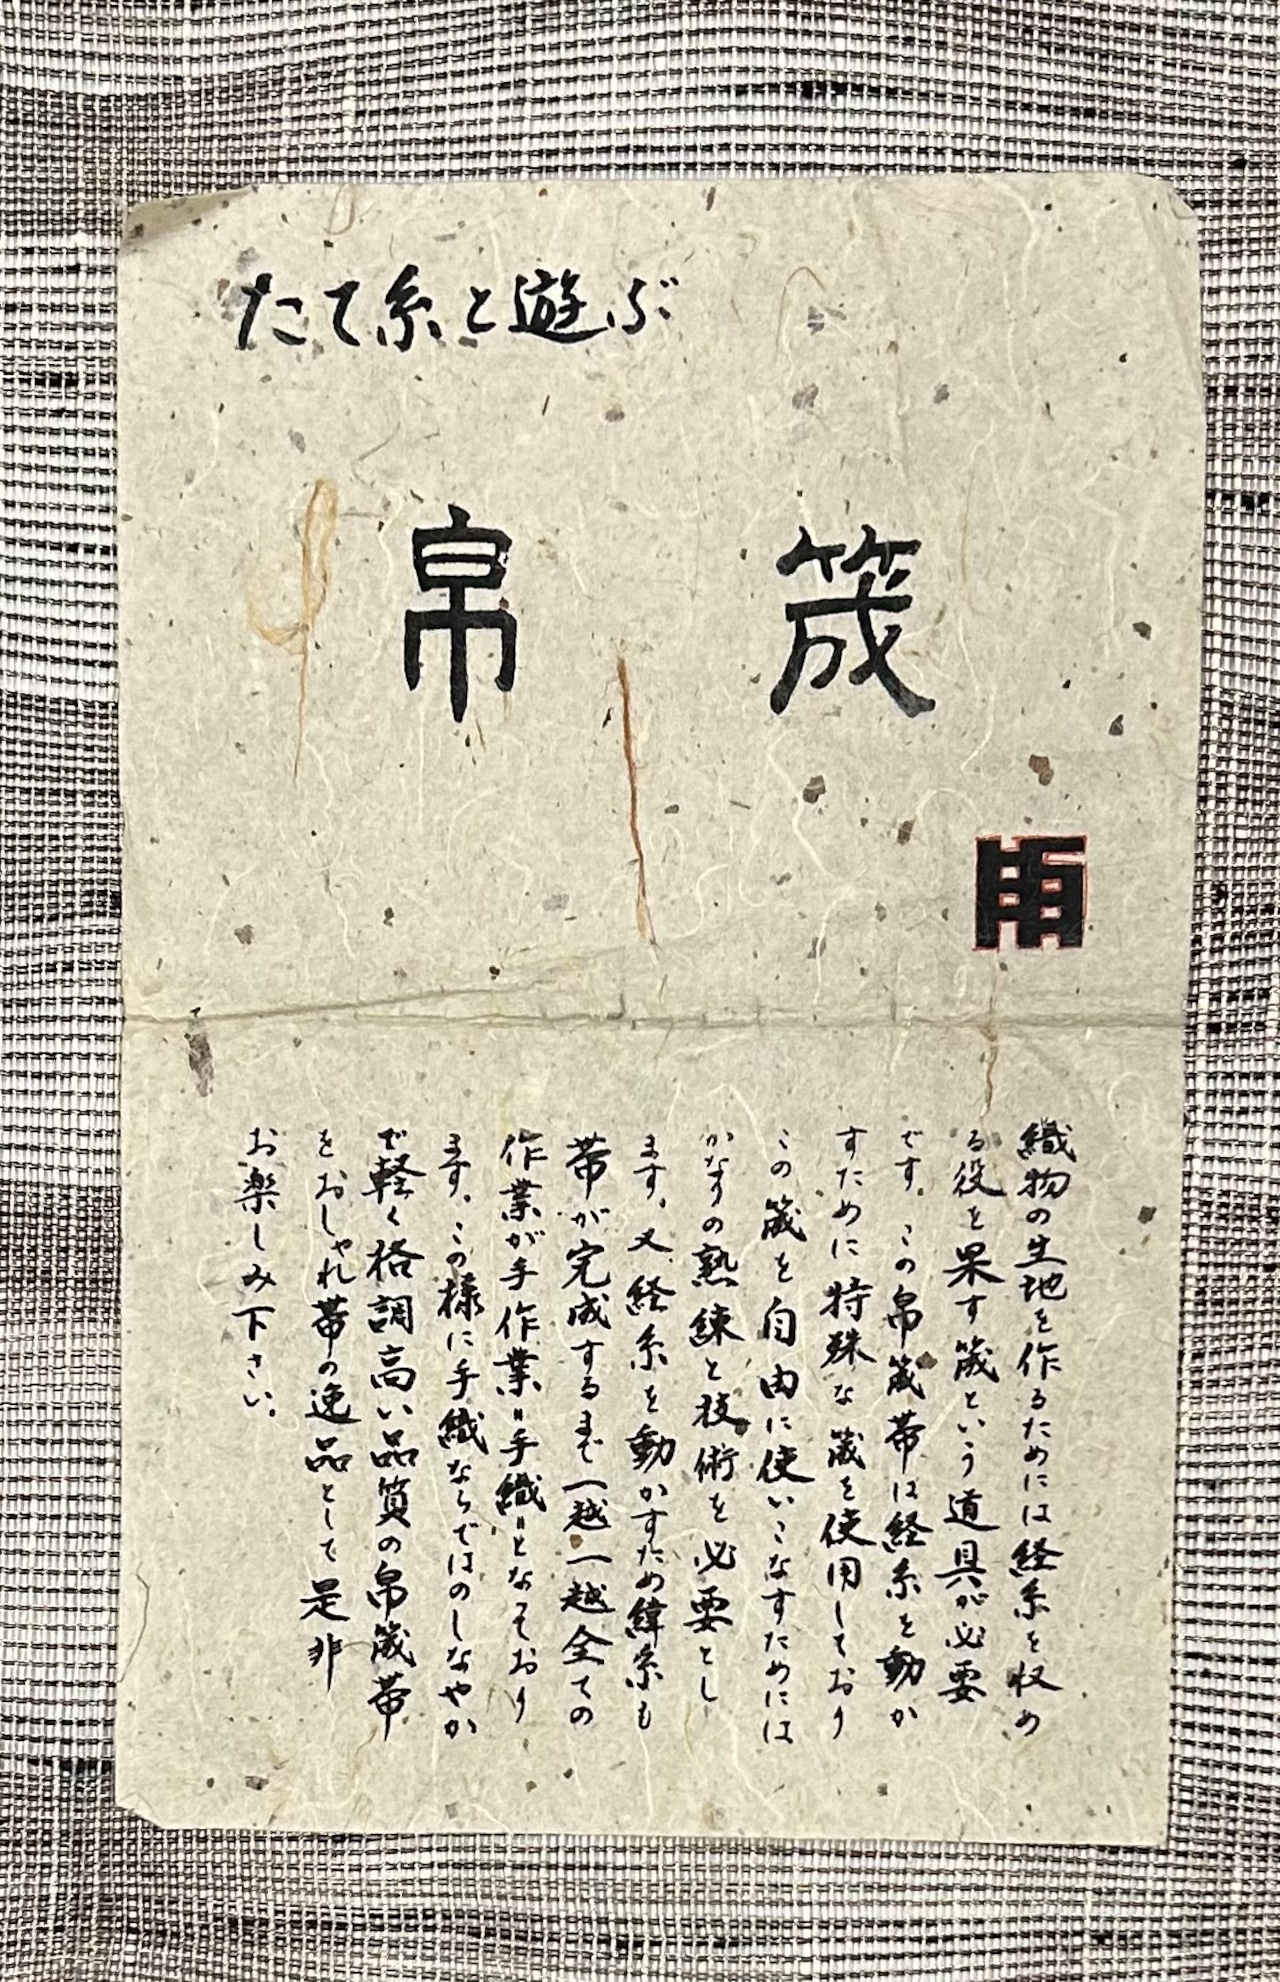 たて糸と遊ぶ
帛 筬
織物の生地を作るためには経糸を収め
る役を果す筬という道具が必要
です。この帛筬帯は経糸を動か
すために特殊な筬を使用しており
この筬を自由に使いこなすためには
かなりの熟練と技術を必要とし
ます。又経糸を動かすため緯糸も
帯が完成するまで一越一越全ての
作業が手作業〃手織〃となっており
ます。この様に手織ならではのしなやか
で軽く格調高い品質の帛筬帯
をおしゃれ帯の逸品として是非
お楽しみ下さい。